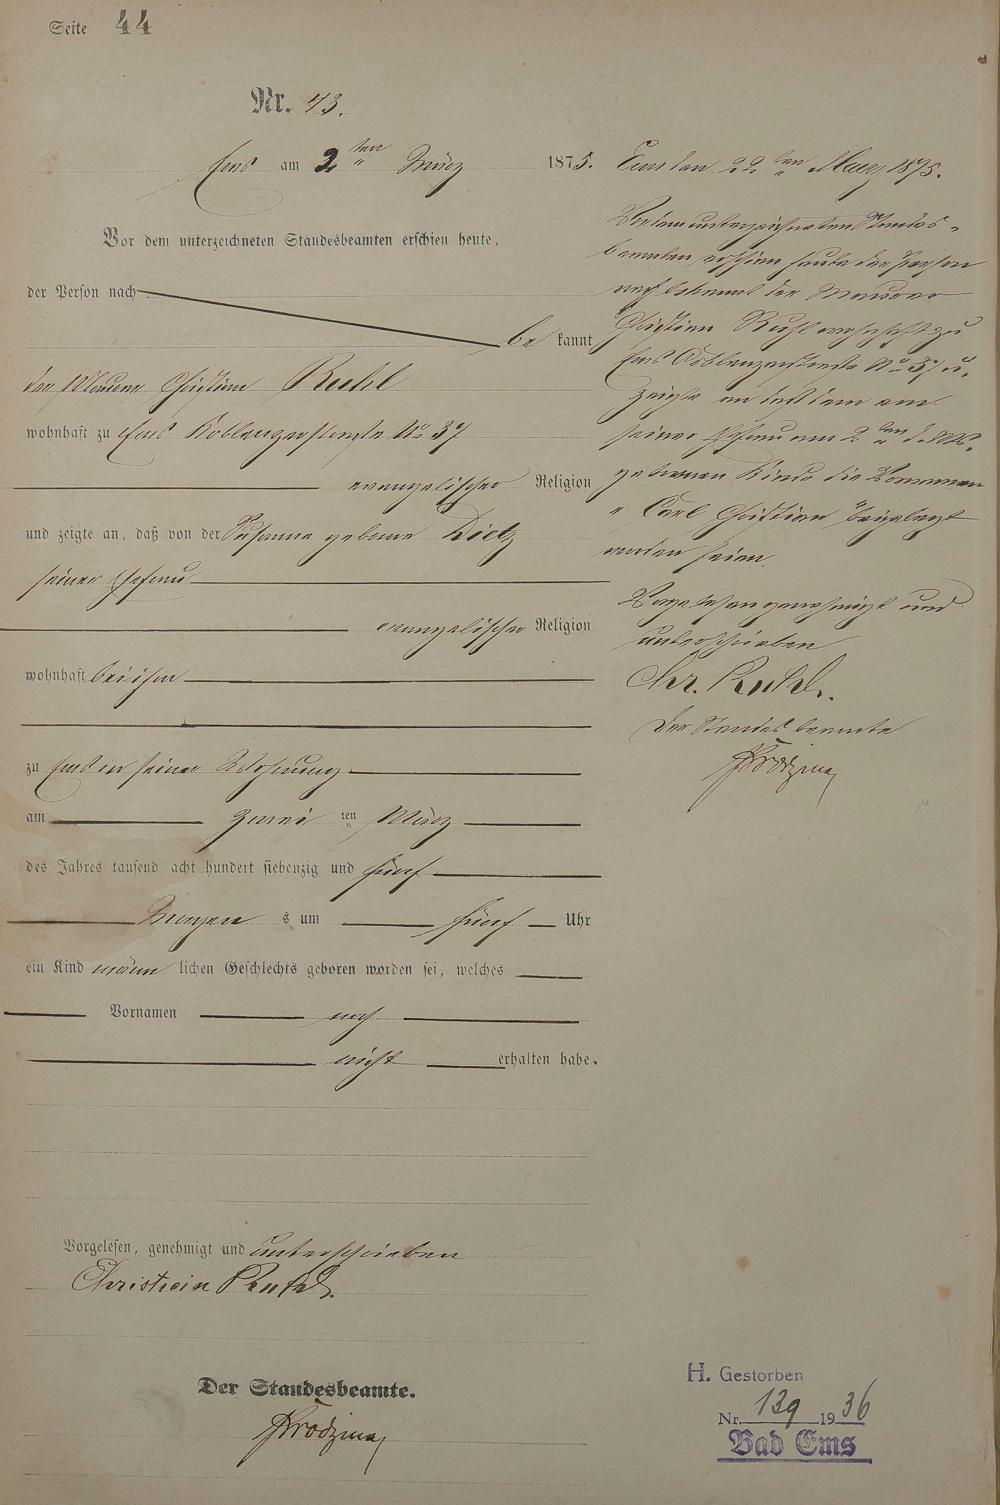 Seite 44
Nr. 43.
Ems am 2ten März 1875.
Vor dem unterzeichneten Standesbeamten erschien heute,
der Person nach
be kannt
der Maurer Christian Ruhl
wohnhaft zu Ems Koblenzerstraße No 37
evangelischer Religion
und zeigte an, daß von der Susanna geborne Dietz
seiner Ehefrau
evangelischer Religion
wohnhaft bei ihm
zu Ems in seiner Wohnung
am zwei ten März
des Jahres tausend acht hundert siebenzig und fünf
Morgen s um fünf Uhr
ein Kind männ lichen Geschlechts geboren worden sei, welches
Vornamen noch
nicht erhalten habe.
Vorgelesen, genehmigt und unterschrieben
Christian Ruhl.
Der Standesbeamte.
Ems den 22ten März 1875.
Vor dem unterzeichneten Standes-
beamten erschien heute der Person
nach bekannt der Maurer
Christian Ruhl wohnhaft zu
Ems Coblenzerstraße No 37 u.
zeigte an daß dem von
seiner Ehefrau am 2ten d. Mts.
geborenen Kinde die Vornamen
"Carl Christian" beigelegt
worden seien.
Vorgelesen genehmigt und
unterschrieben
Chr. Ruhl.
Der Standesbeamte
H. Gestorben
Nr. 139 1936
Bad Ems